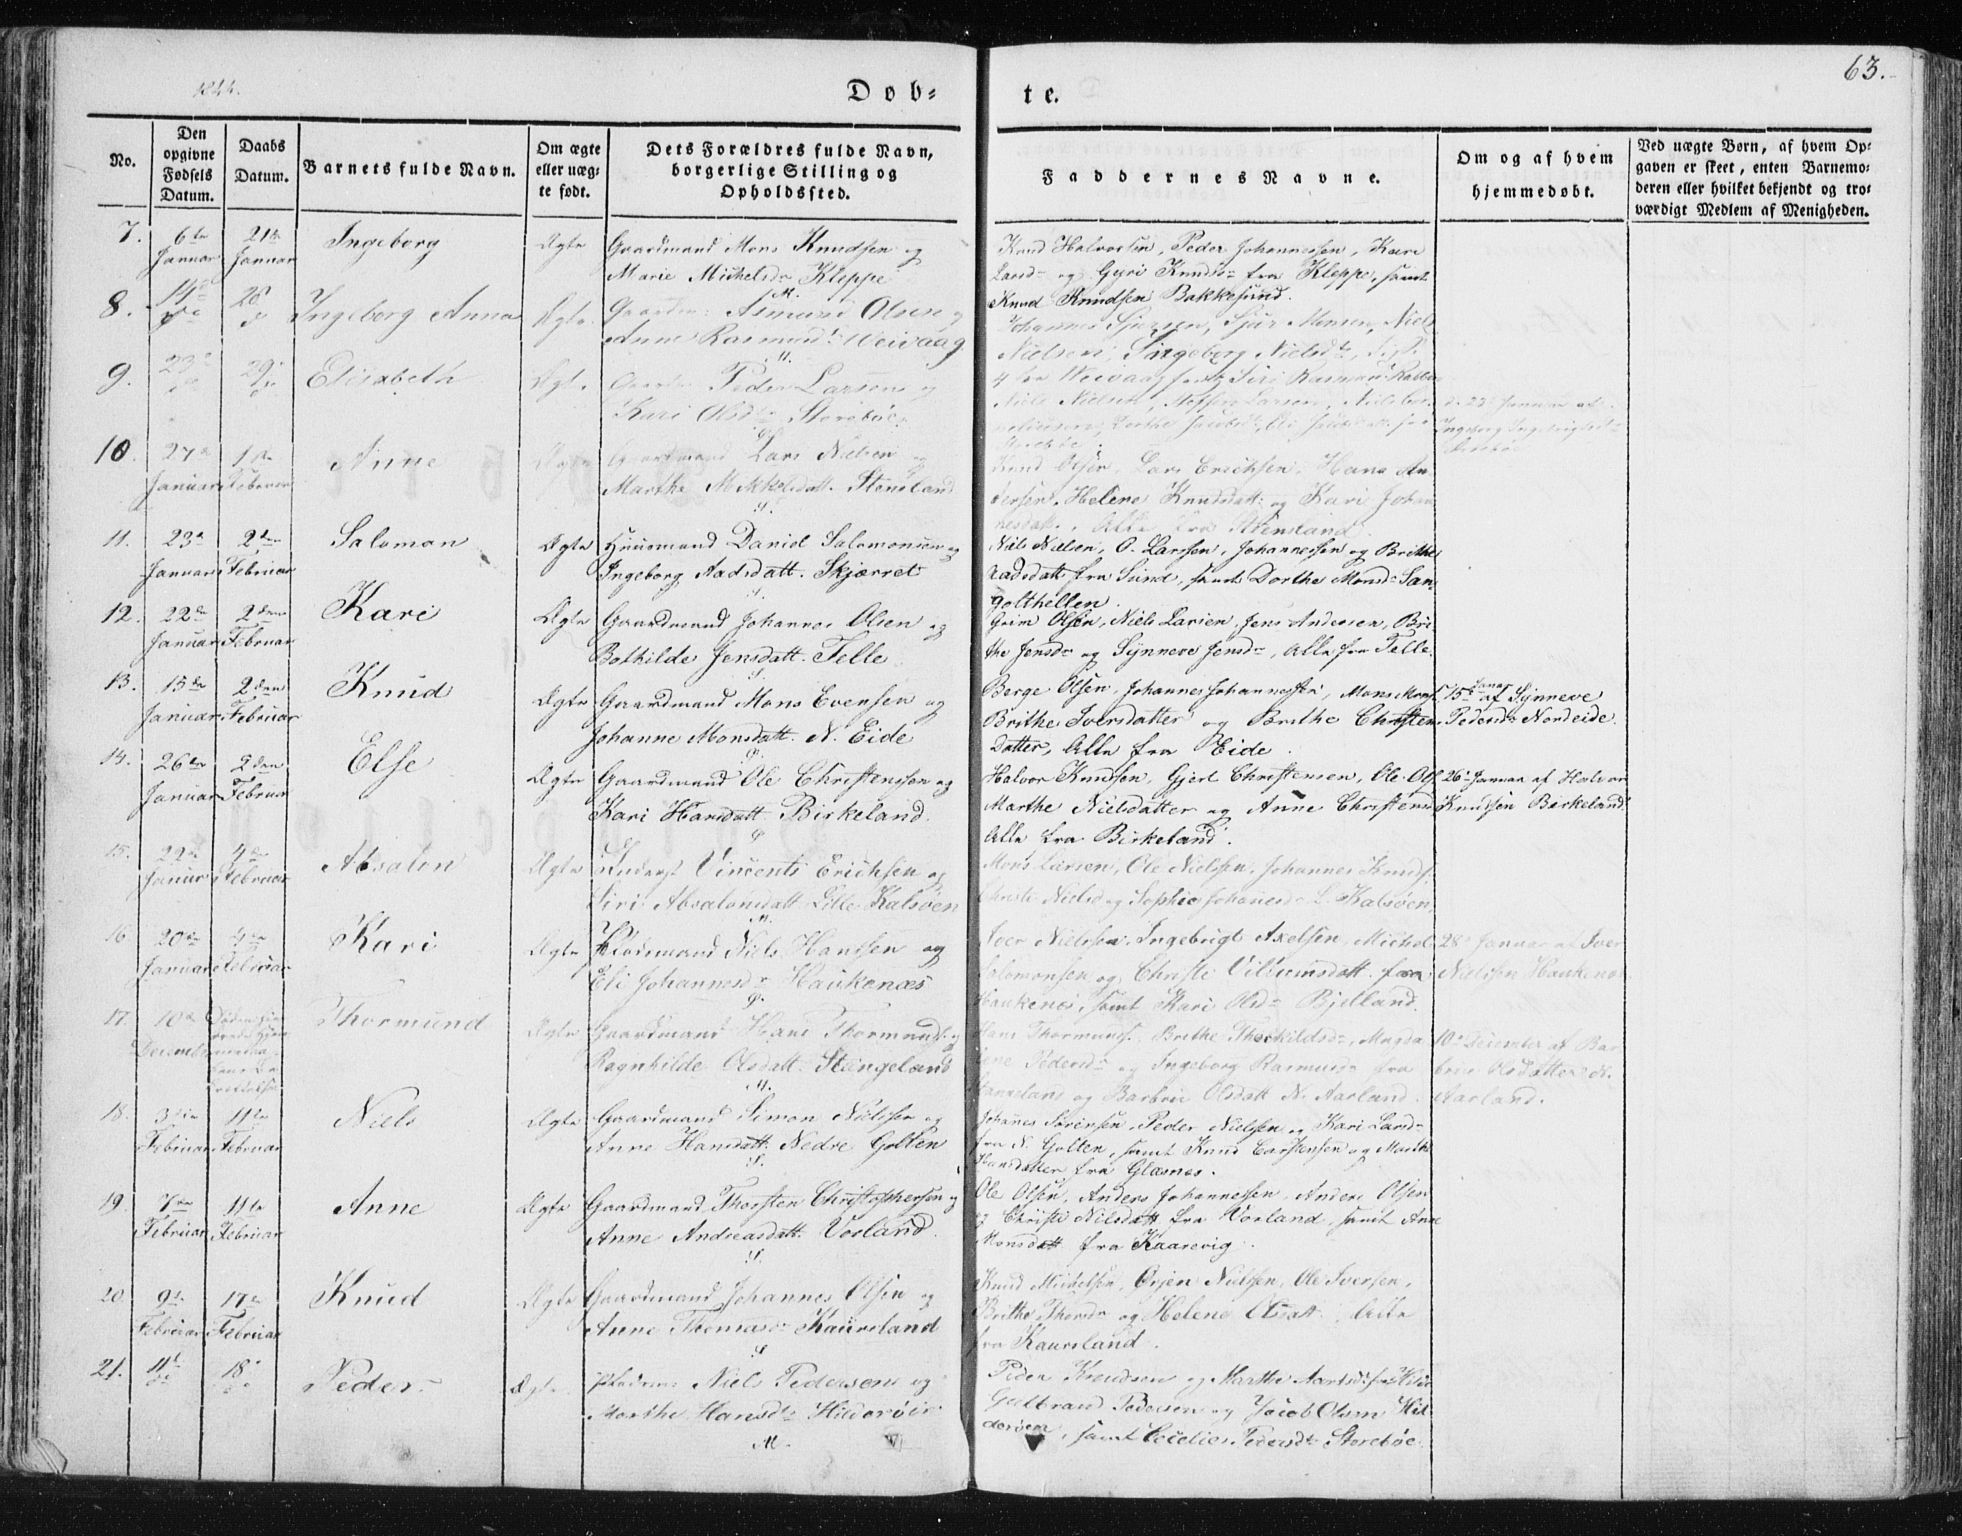 1844.
63.
Døb-
te.
No.
Den opgivne Fødsels Datum.
Daabs Datum.
Barnets fulde Navn.
Om ægte eller uægte født.
Dets Forældres fulde Navn, borgerlige Stilling og Opholdssted.
Faddernes Navne.
Om og af hvem hjemmedøbt.
Ved uægte Børn, af hvem Op-
gaven er skeet, enten Barnemo-
deren eller hvilket bekjendt og tro-
værdigt Medlem af Menigheden.
7. 6te Januar 21de Januar Ingeborg Ægte Gaardmand Mons Knudsen og
Marie Michelsdr Kleppe
M.
Knud Halvorsen, Peder Johannessen, Kari
Larsdr og Gyri Knudsdr fra Kleppe, samt
Knud Knudsen Bakkesund.
8. 14de 28 Ingeborg Anna Ægte Asmund Olsen og
Anne Rasmusdr Weivaag
M.
Johannes Sjursen, Sjur Monsen, Niels
Nielsen, Ingeborg Nielsdr,
fra Weivaag samt Siri Rasmusdr
9. 29 Elisabeth Ægte Peder Larsen og
Kari Olsdr Storebøe
Niels Nielsen, Larsen,
Dorthe Jacobsdr,
d. 23 Januar af
Ingeborg Ingebrigtsdr
Storebøe
10. 27de Januar 1ste Februar Anne Ægte Gaardmand Lars Nielsen og
Marthe Mikkelsdatt. Steensland
S.
Knud Olsen, Lars Erichsen, Hans An-
dersen, Helene Knudsdatt. og Kari Johan-
nesdatt., Alle fra Steensland.
11. 23de Januar 2den Februar Salomon Ægte Huusmand Daniel Salomonsen og
Ingeborg Aadsdatt. Skjærret
S.
Nils Nielsen, O. Larssen, Johannessen og Brithe
Aadsdatt fra Sund, samt Dorthe Monsdr San-
golthellen.
12. 22de Januar 2den Februar Kari Ægte Gaardmand Johannes Olsen og
Bothilde Jensdatt. Telle
S.
Grim Olsen, Niels Larsen, Jens Andersen, Bri-
the Jensdr og Synneve Jensdr, Alle fra Telle.
13. 15de Januar 2den Februar Knud Ægte Gaardmand Mons Evensen og
Johanne Monsdatt. N. Eide
Berge Olsen, Johannes Johannesen, Mons Mons.
Brithe Iversdatter og Brithe Christen-
datter, Alle fra Eide.
15de Januar af Synneve
Pedersdr Nordeide.
14. 26de Januar 2den Februar Else Ægte Gaardmand Ole Christenssen og
Kari Hansdatt. Birkeland.
Halvor Knudsen, Gjert Christensen, Ole Ols.
Marthe Nielsdatter og Anne Christensd
Alle fra Birkeland.
26de Januar af Halvor
Knudsen Birkeland
15. 22de Januar 4de Februar Absalon Ægte Vincents Erichsen og
Siri Absalonsdatt. Lille Kalsøen
M.
Mons Larsen, Ole Nielsen, Johannes Knuds.
Christi Nielsd og Sophie Johannesdr L. Kalsøen.
16. 20de Januar 4de Februar Kari Ægte Niels Hanssen og
Eli Johannesdr Haukenæs
Iver Nielssen, Ingebrigt Axelsen, Michel
Solomonsen og Christi Villumsdatt. fra
Haukenes, samt Kari Olsdr Bjelland.
28de Januar af Iver
Nielsen Haukenes
17. 10de December Thormund Ægte Gaardmand Hans Thormunds. og
Ragnhilde Olsdatt. Stangeland
M.
Hans Thormunds. Brithe Thorkildsdr, Magda-
lene Pedersdr og Ingeborg Rasmusdr fra
Stangeland og Barbrie Olsdatt N. Aarland.
10de December af Bar-
brie Olsdatter N.
Aarland.
18. 3die Februar 11te Februar Niels Ægte Gaardmand Simon Nielsen og
Anne Hansdatt. Nedre Golten
S.
Johannes Sørensen, Peder Nielsen og Kari Larsdr
fra N. Golten, samt Knud Carstensen og Marthe
Hansdatter fra Glæsnes.
19. 7de Februar 11te Februar Anne Ægte Gaardmand Thorsten Christophersen og
Anne Andreasdatt. Vorland.
S.
Ole Olsen, Anders Johannessen, Anders Olsen
og Christi Nilsdatt fra Vorland, samt Anne
Monsdatt fra Kaarevig.
20. 9de Februar 17de Februar Knud Ægte Gaardmand Johannes Olsen og
Anne Thomasdr Kausland
S
Knud Michelsen, Ørjen Nielsen, Ole Iversen,
Brithe Thorsdr og Helene Olsdatt., Alle
fra Kausland.
21. 4de 18de Peder Ægte Niels Pedersen og
Marthe Hansdr Hilderøen
M.
Peder Knudsen og Marthe
Gulbrand Pedersen og Jacob Olsen Hil-
derøen, samt Cecelie Pedersdr Storebøe.